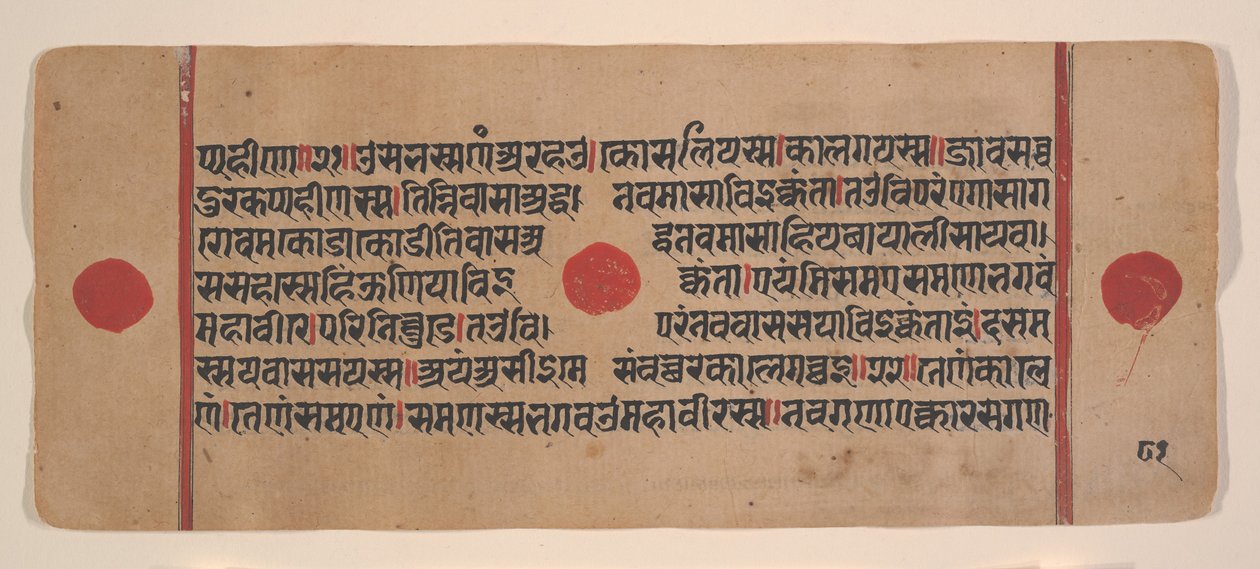 प्पहीणा॥२१॥उसभस्सणंअरहउ।कोसलियस्स।कालगयस्स॥जावसव्व
दुरकप्पहीणस्स।तिन्निवासाअद्ध। नवमासाविइक्कंता।तउविपरंएगासाग
रोवमकोडाकोडीतिवासअ द्धनवमासाहियबायालीसायवा।
ससहास्सेहिऊणियाविइ क्कंता।एयंमिसमएसमणेभगवं
महावीरे।परिनिव्वुडे।तउवि। परंनववाससयाविइक्कंताइं।दसम
स्सयवाससयस्स॥अयंअसीइमे संवच्छरेकालेगच्छइ॥२२॥तेणंकाले
णं।तेणंसमएणं।समणस्सभगवउमहावीरस्स॥नवगणाएक्कारसगण
८१